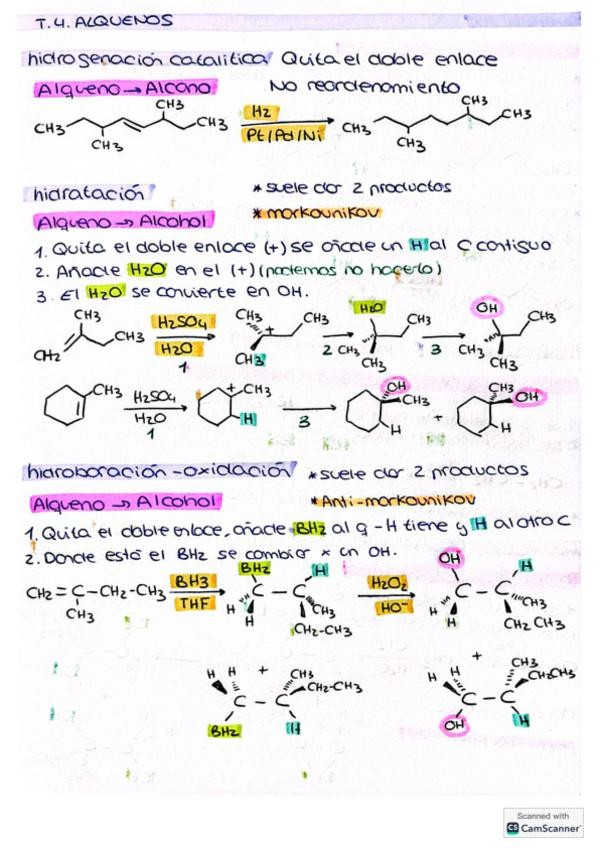 T.4. ALQUENOS
hidrogenación catalítica Quita el doble enlace
Alqueno → Alcano No reordenamiento
CH3 CH3
CH3 CH3 H2 CH3 CH3
CH3 Pt/Pd/Ni CH3
hidratación * suele dar 2 productos
Alqueno → Alcohol * markounikov
1. Quita el doble enlace (+) se añade un H al C contiguo
2. Añade H2O en el (+) (podemos no hacerlo)
3. El H2O se convierte en OH.
CH3 H2SO4 CH3 CH3 H2O CH3 OH CH3
CH3 + 
CH2 H2O CH3 2 CH3 3 CH3
1 CH3 CH3
CH3 H2SO4 + CH3 OH CH3 CH3 OH
H2O H + 
1 3 H H
hidroboración-oxidación * suele dar 2 productos
Alqueno → Alcohol * Anti-markounikov
1. Quita el doble enlace, añade BH2 al q - H tiene y H al otro C
2. Donde está el BH2 se cambia x un OH.
BH2 H OH H
CH2=C-CH2-CH3 BH3 C - C H2O2 C - C
CH3 THF H CH3 HO⁻ H CH3
H CH2-CH3 H CH2CH3
+ +
H H CH3 H H CH3
CH2-CH3 CH2CH3
C - C C - C
BH2 H OH H
Scanned with
CS CamScanner